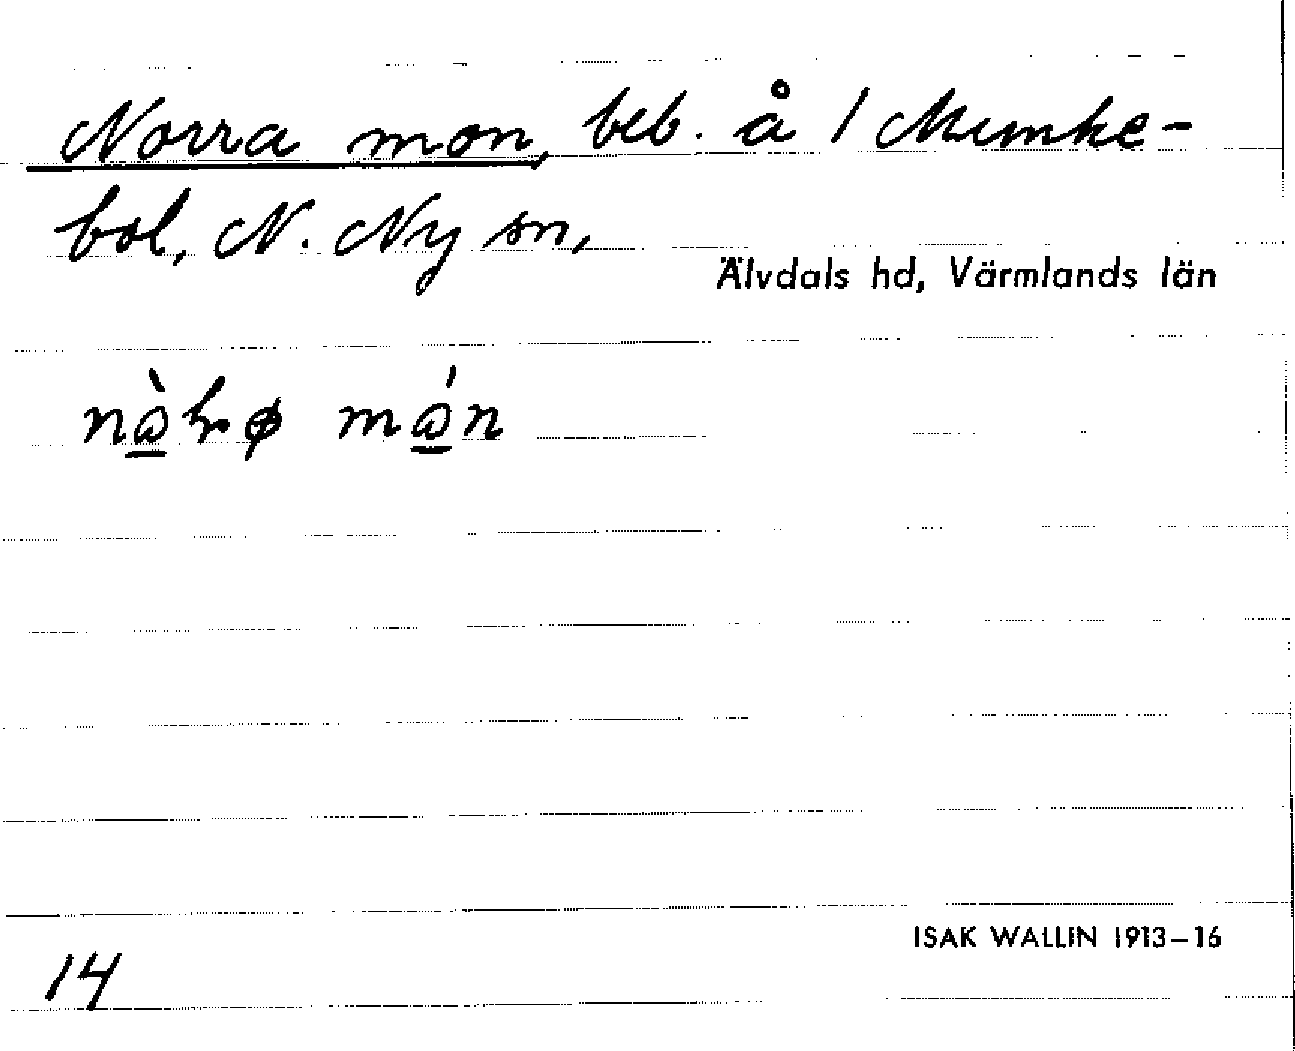 Norra mon, beb. å / Munke-
bol, N. Ny sn,
Älvdals hd, Värmlands län
ISAK WALLIN 1913–16
14